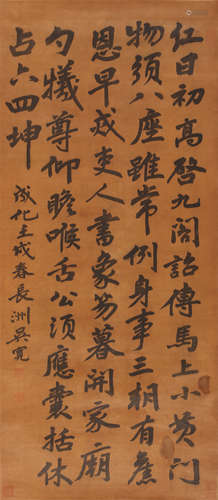 红日初高启九阁诏传马上小黄门
物须八座虽常例身事三朝有旧
恩早戒吏人书象笏暮开家庙
勺牺尊仰瞻喉舌公须应囊括休
占六四坤
成化壬戌春长洲吴宽